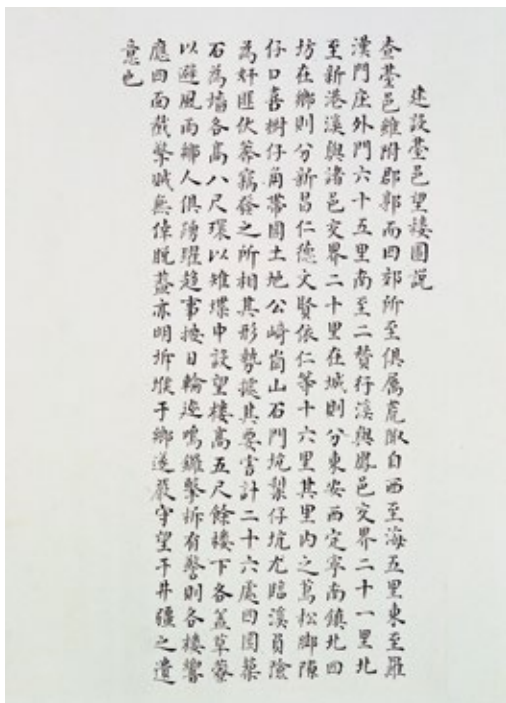 建設臺邑望樓圖說
查臺邑雖附郡郭而四郊所至俱屬自西至海五里東至羅
漢門庄外門六十五里南至二贊行溪與鳳邑交界二十一里北
至新港溪與諸邑交界二十里在城則分東安西定寧南鎮北四
坊在鄉則分新昌仁德文賢依仁等十六里其里內之蔦松腳陳
仔口喜樹仔角帶圍土地公崎崗山石門坑梨仔坑尤臨溪負險
為奸匪伏莽竊發之所相其形勢據其要害計二十六處四圍築
石為墻各高八尺環以雉堞中設望樓高五尺餘樓下各蓋草寮
以避風雨鄉人俱踴躍趨事挨日輪巡鳴鑼擊柝有警則各樓響
應四面截拏賊無倖脫蓋亦明坼堠于鄉遂嚴守望于井疆之遺
意也